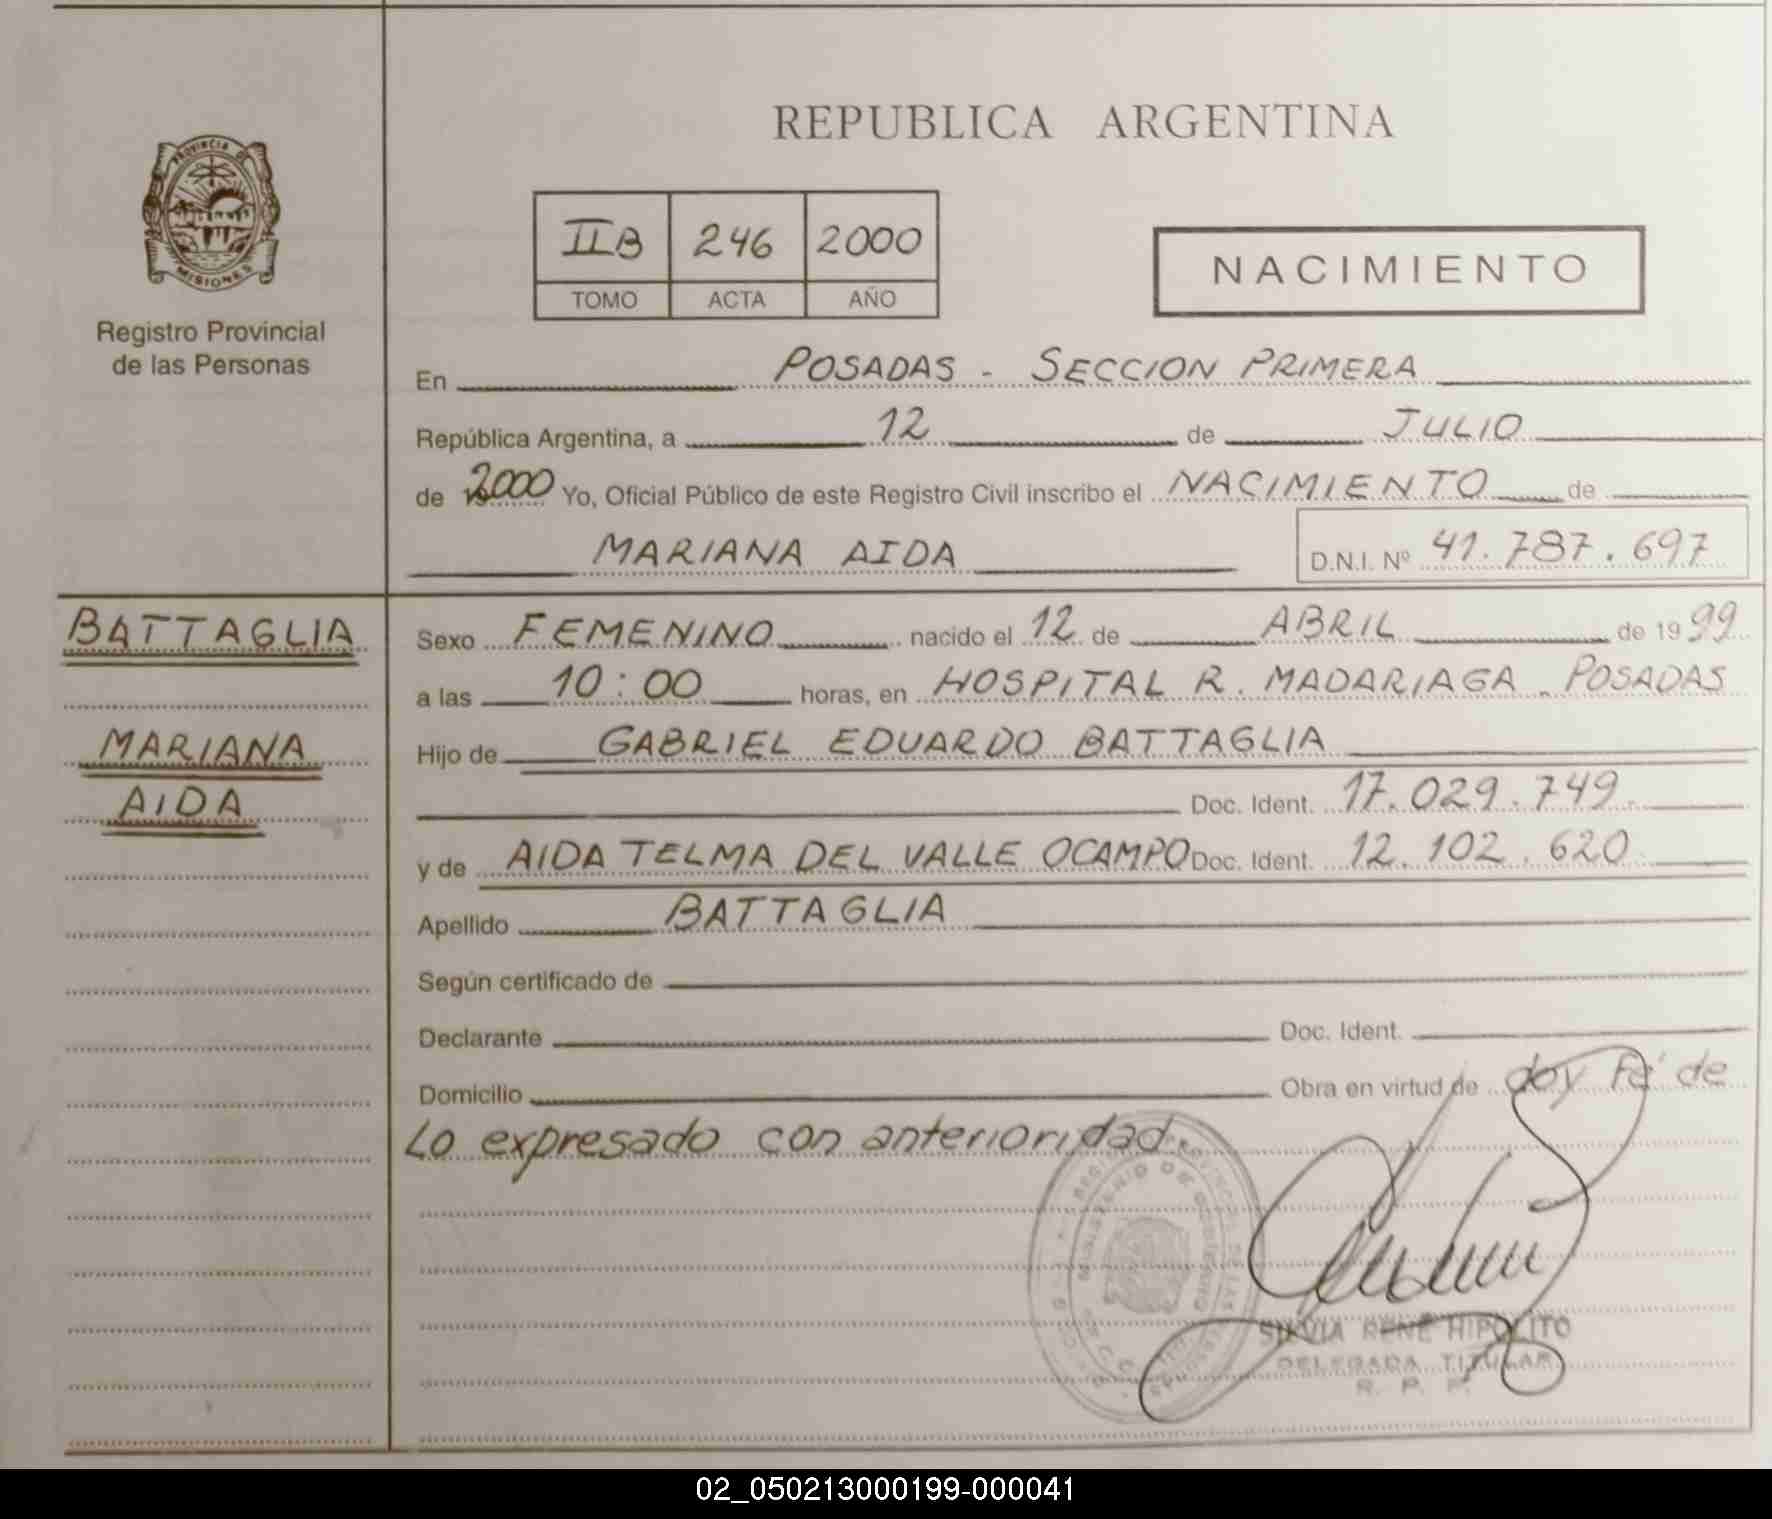 REPUBLICA ARGENTINA
PROVINCIA DE
MISIONES
Registro Provincial
de las Personas
IIB 246 2000
TOMO ACTA AÑO
NACIMIENTO
En POSADAS - SECCION PRIMERA
República Argentina, a 12 de JULIO
de 2000 Yo, Oficial Público de este Registro Civil inscribo el NACIMIENTO de
MARIANA AIDA D.N.I. Nº 41.787.697
BATTAGLIA
MARIANA
AIDA
Sexo FEMENINO nacido el 12 de ABRIL de 1999
a las 10:00 horas, en HOSPITAL R. MADARIAGA - POSADAS
Hijo de GABRIEL EDUARDO BATTAGLIA
Doc. Ident. 17.029.749
y de AIDA TELMA DEL VALLE OCAMPO Doc. Ident. 12.102.620
Apellido BATTAGLIA
Según certificado de
Declarante Doc. Ident.
Domicilio Obra en virtud de doy Fé de
Lo expresado con anterioridad
MINISTERIO DE
SILVIA RENÉ HIPOLITO
DELEGADA TITULAR
R. P. P.
02_050213000199-000041